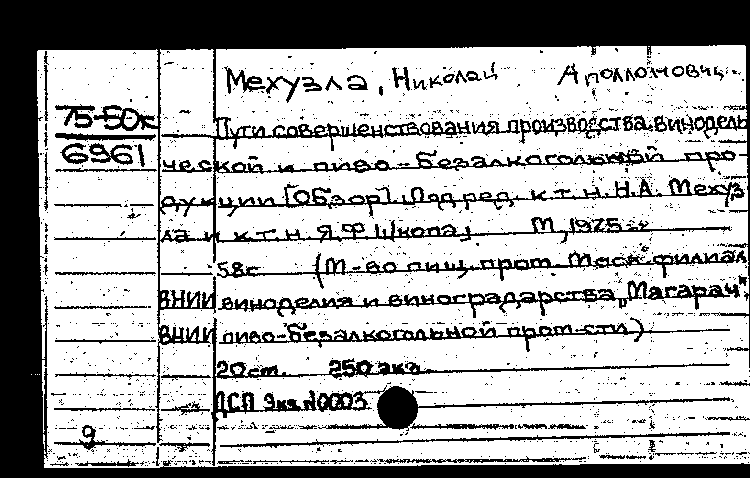 Мехузла, Николай Аполлонович.
75-50к
6961
Пути совершенствования производства винодель
ческой и пиво-безалкогольной про-
дукции [Обзор]. Под ред. к.т.н. Н.А. Мехуз
ла и к.т.н. Я.Ф. Школа, М, 1975
58с (М-во пищ. пром. Моск. филиал
ВНИИ виноделия и виноградарства „Магарач",
ВНИИ пиво-безалкогольной пром-сти)
20см. 250 экз.
ДСП Экз. №0003
9